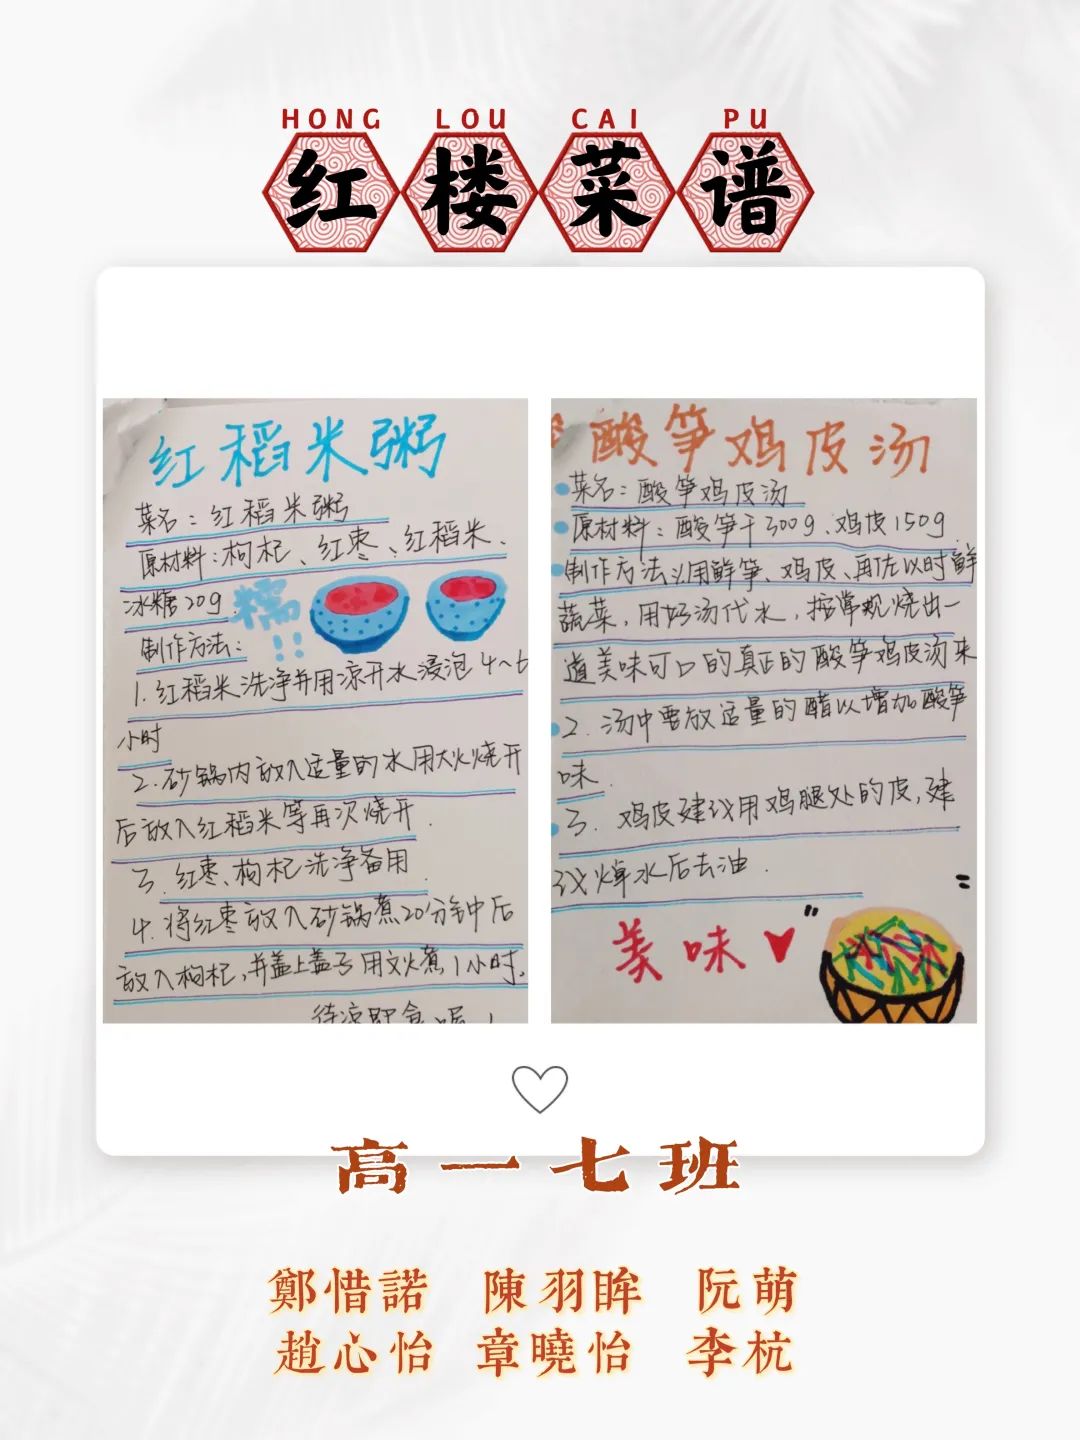 HONG LOU CAI PU
红楼菜谱
红稻米粥
菜名：红稻米粥
原材料：枸杞、红枣、红稻米、
冰糖20g
糯!!
制作方法：
1.红稻米洗净并用凉开水浸泡4~6
小时
2.砂锅内放入适量的水用大火烧开
后放入红稻米等再次烧开.
3.红枣、枸杞洗净备用
4.将红枣放入砂锅煮20分钟中后
放入枸杞,并盖上盖子用文火煮1小时.
待凉即食
酸笋鸡皮汤
菜名：酸笋鸡皮汤
原材料：酸笋干300g、鸡皮150g
制作方法 以用鲜笋、鸡皮、再佐以时鲜
蔬菜，用好汤代水，按常规烧出一
道美味可口的真正的酸笋鸡皮汤来
2.汤中要放适量的醋以增加酸笋
味.
3.鸡皮建议用鸡腿处的皮,建
议焯水后去油.
美味
高一七班
鄭惜諾 陳羽眸 阮萌
趙心怡 章曉怡 李杭